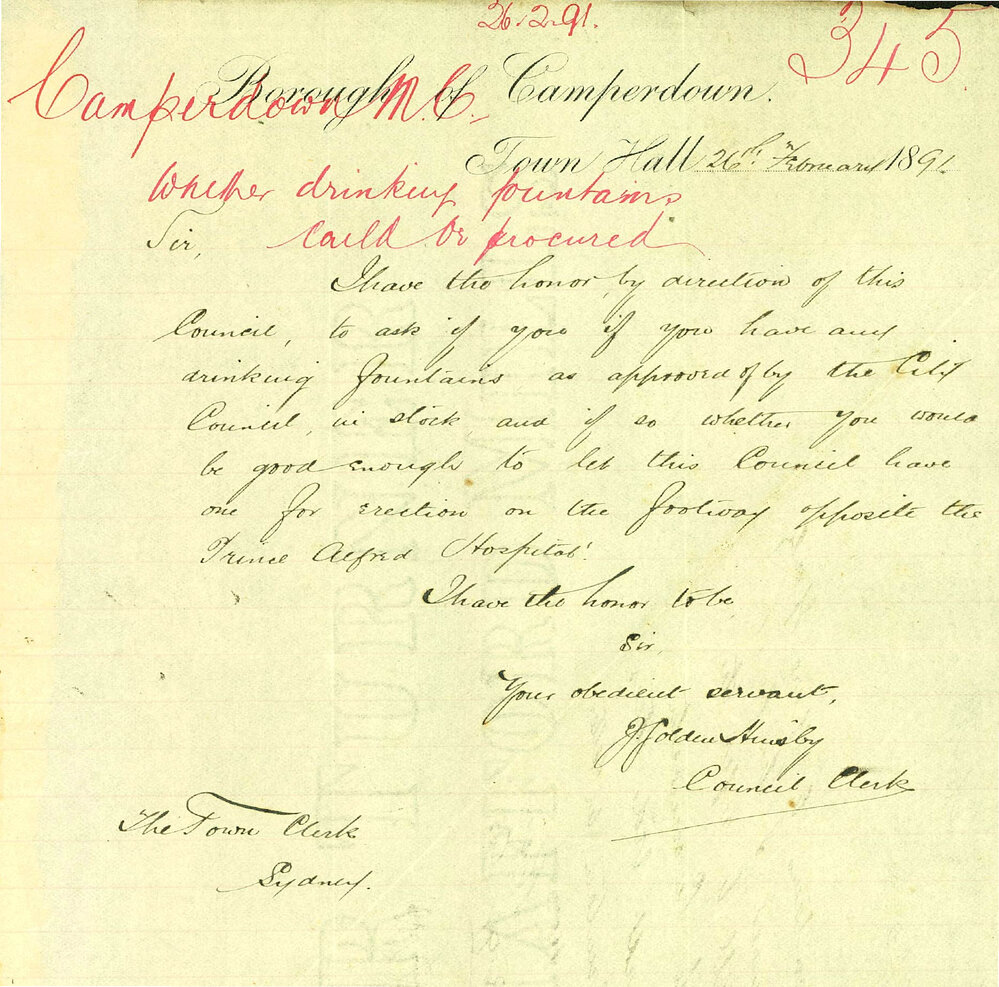 26.2.91.
345
Borough of Camperdown.
Camperdown M.C.
Town Hall 26th February 1891
Whether drinking fountains
Could be procured
Sir,
I have the honor, by direction of this
Council, to ask if you if you have any
drinking fountains, as approved of by the City
Council, in stock, and if so whether you would
be good enough to let this Council have
one for erection on the footway opposite the
Prince Alfred Hospital.
I have the honor to be
Sir,
Your obedient servant,
Council Clerk
The Town Clerk
Sydney.